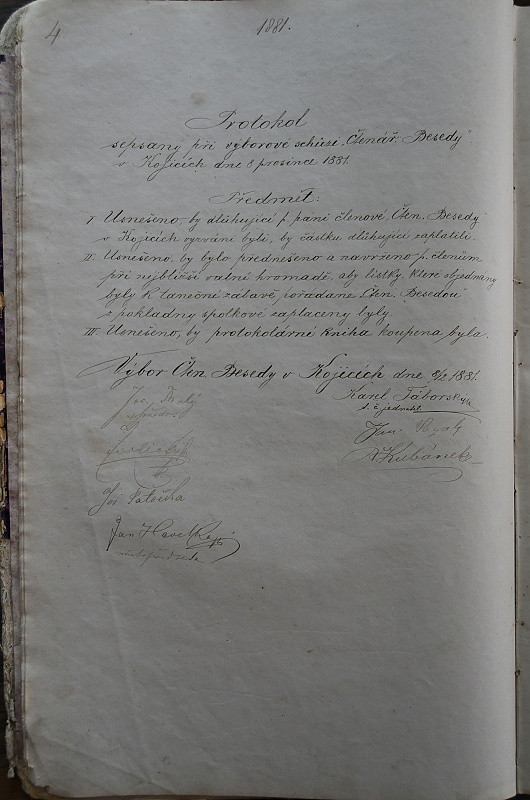 4
1881.
Protokol
sepsaný při výborové schůzi „Čtenář. Besedy"
v Kojicích dne 8 prosince 1881.
Předmět:
I Usnešeno, by dlůhující p. páni členové, Čten. Besedy
v Kojicích vyzváni byli, by částku dlůhující zaplatili.
II. Usnešeno, by bylo přednešeno a navrženo p. členům
při nejbližší valní hromadě, aby lístky které objednány
byly k taneční zábavě pořádané „Čten. Besedou"
z pokladny spolkové zaplaceny byly.
III Usnešeno, by protokolární kniha koupena byla.
Výbor Čten. Besedy v Kojicích dne 8/12 1881.
Karel Táborský
t. č. jednatel
Jan
Kubánek
Patočka
Jan Havelka
místopředseda